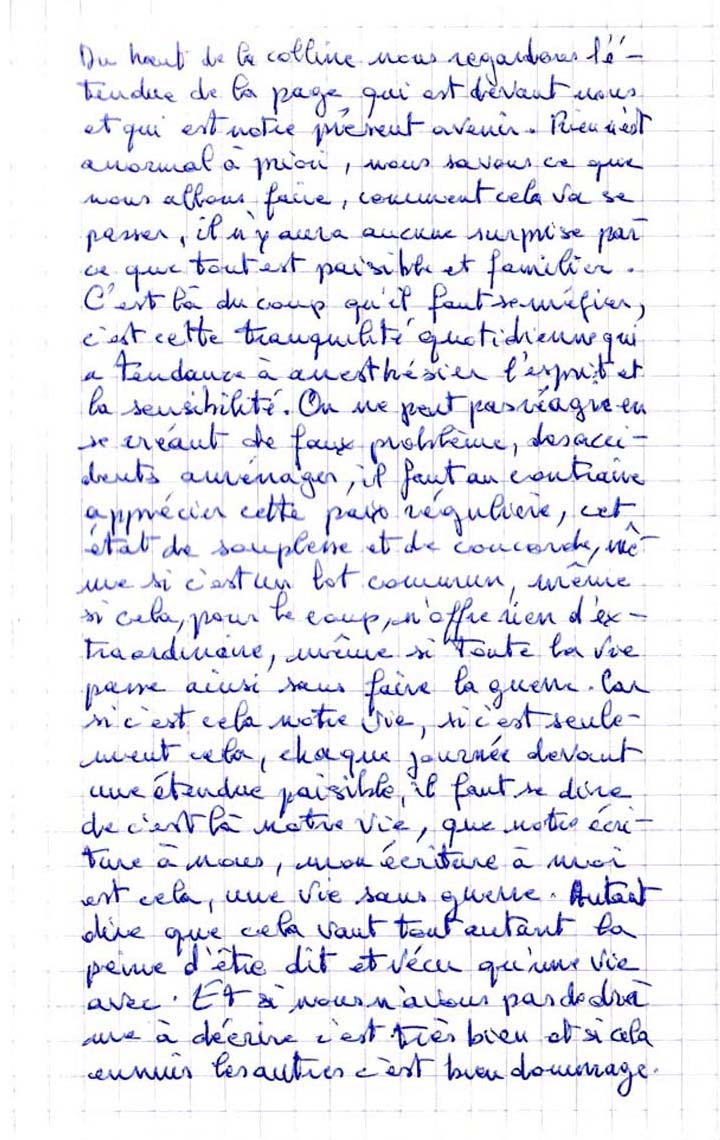 Du haut de la colline nous regardons l'é-
tendue de la page qui est devant nous
et qui est notre présent avenir. Rien n'est
anormal à priori, nous savons ce que
nous allons faire, comment cela va se
passer, il n'y aura aucune surprise par
ce que tout est paisible et familier.
C'est là du coup qu'il faut se méfier,
c'est cette tranquilité quotidienne qui
a tendance à anesthésier l'esprit et
la sensibilité. On ne peut pas réagir en
se créant de faux problème, des acci-
dents au ménager, il faut au contraire
apprécier cette paix régulière, cet
état de souplesse et de concorde, mê-
me si c'est un lot commun, même
si cela, pour le coup, n'offre rien d'ex-
traordinaire, même si toute la vie
passe ainsi sans faire la guerre. Car
si c'est cela notre vie, si c'est seule-
ment cela, chaque journée devant
une étendue paisible, il faut se dire
de c'est là notre vie, que notre écri-
ture à nous, mon écriture à moi
est cela, une vie sans guerre. Autant
dire que cela vaut tout autant la
peine d'être dit et vécu qu'une vie
avec. Et si nous n'avons pas de dra
me à décrire c'est très bien et si cela
ennuis les autres c'est bien dommage.